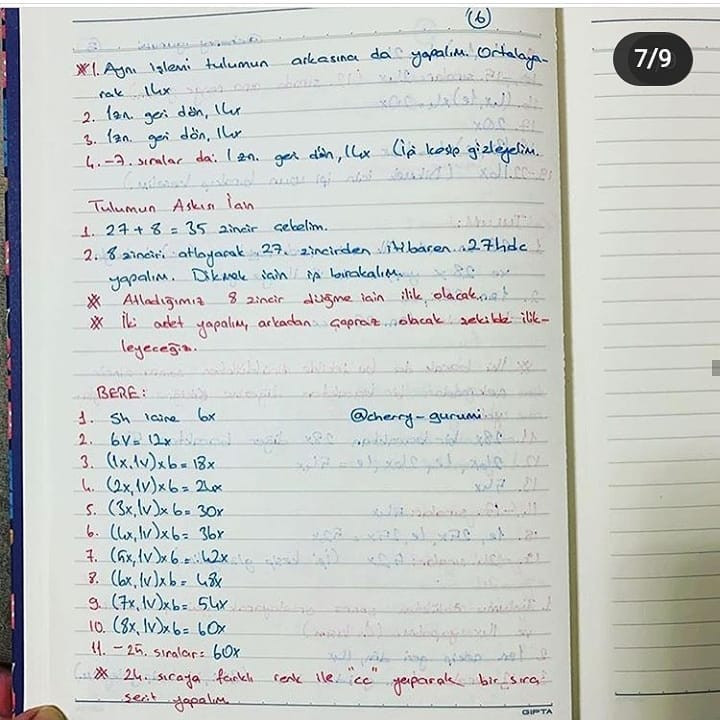 (6)
7/9
*1. Aynı işlemi tulumun arkasına da yapalım. Ortalaya-
rak 14x
2. 1zn. geri dön, 14x
3. 1zn. geri dön, 14x
4. -7. sıralar da: 1zn. geri dön, 14x (ipi kesip gizleyelim.
Tulumun Askısı İçin
1. 27+8 = 35 zincir çekelim.
2. 8 zinciri atlayarak 27. zincirden itibaren 27hdc
yapalım. Dikmek için ip bırakalım.
* Atladığımız 8 zincir düğme için ilik olacak.
* İki adet yapalım, arkadan çapraz olacak şekilde ilik-
leyeceğiz.
BERE:
1. Sh içine 6x @cherry-gurumi
2. 6V = 12x
3. (1x,1v)x6 = 18x
4. (2x,1v)x6 = 24x
5. (3x,1v)x6 = 30x
6. (4x,1v)x6 = 36x
7. (5x,1v)x6 = 42x
8. (6x,1v)x6 = 48x
9. (7x,1v)x6 = 54x
10. (8x,1v)x6 = 60x
11. - 25. sıralar = 60x
* 24. sıraya farklı renk ile "cc" yaparak bir sıra
şerit yapalım.
GIPTA